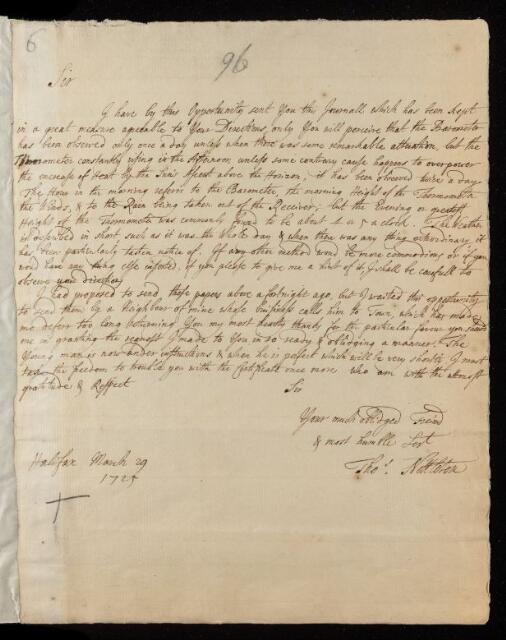 6
96
Sir
I have by this Opportunity sent You this Journall which has been kept
in a great measure agreeable to Your Directions, only You will perceive that the Barometer
has been observed only once a day unless when there was some remarkable alteration, but the
Thermometer constantly rising in the Afternoon, unless some contrary cause happens to overpower
the encrease of Heat by the Sun's Ascent above the Horizon, it has been observed twice a day
The Hour in the morning refers to the Barometer, the morning Height of the Thermometer
the Winds, & to the Rain being taken out of the Receiver, but the Evening or greatest
Height of the Thermometer was commonly found to be about 4 or 5 a clock. The Weather
is described in short such as it was the whole day & when there was any thing extraordinary, it
has been particularly taken notice of. If any other method wou'd be more commodious or if you
wou'd have any thing else inserted, if you please to give me a hint of it, I shall be carefull to
observe your directions
I had proposed to send these papers above a fortnight ago, but I waited this opportunity
to send them by a Neighbour of mine whose business calls him to Town, which has made
me defer too long returning You my most hearty thanks for the particular favour you
me in granting the request I made to You in so ready & obliging a manner. The
Young man is now under instructions & when he is perfect which will be very shortly I must
take the freedom to trouble you with the Certificate once more who am with the utmost
gratitude & Respect
Sir
Your much obliged Friend
& most humble Servt
Tho.s Nettleton
Halifax March 29